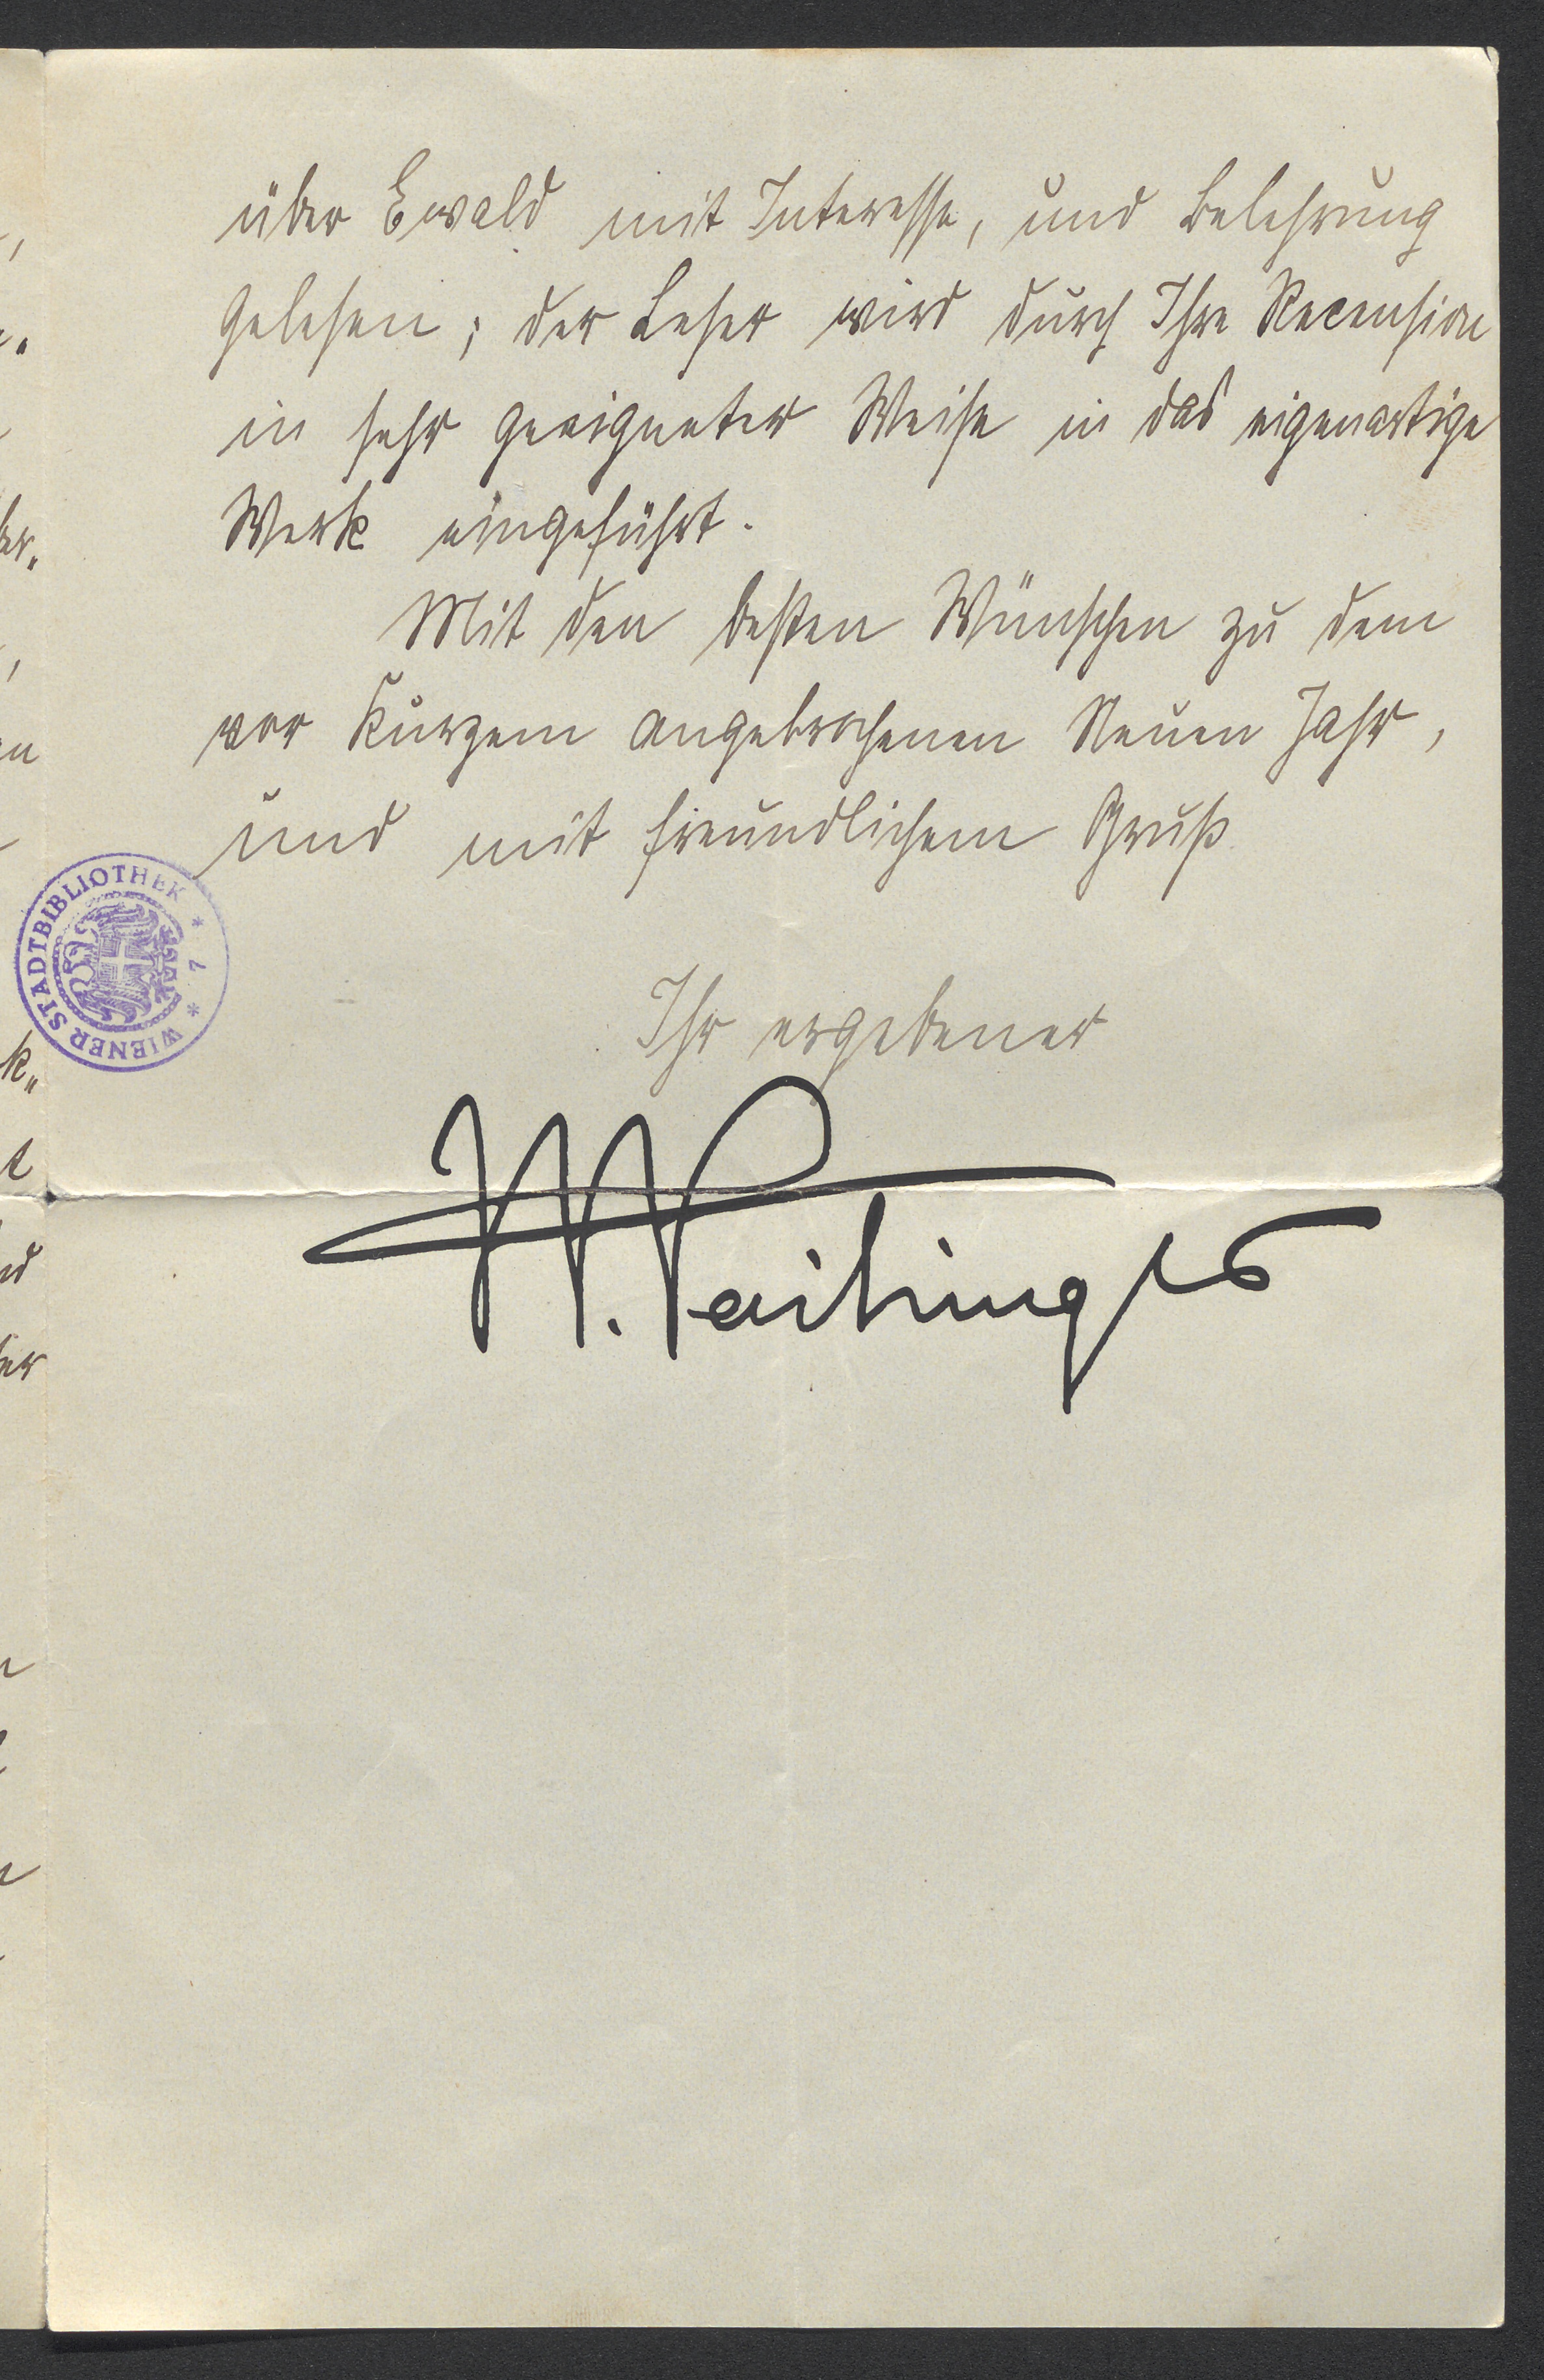 über Ewald mit Interesse, und Belehrung
gelesen; der Leser wird durch Ihre Recension
in sehr geeigneter Weise in das eigenartige
Werk eingeführt.
Mit den besten Wünschen zu dem
vor Kurzem angebrochenen Neuen Jahr,
und mit freundlichem Gruß
WIENER STADTBIBLIOTHEK * 7 *
Ihr ergebener
H. Vaihinger